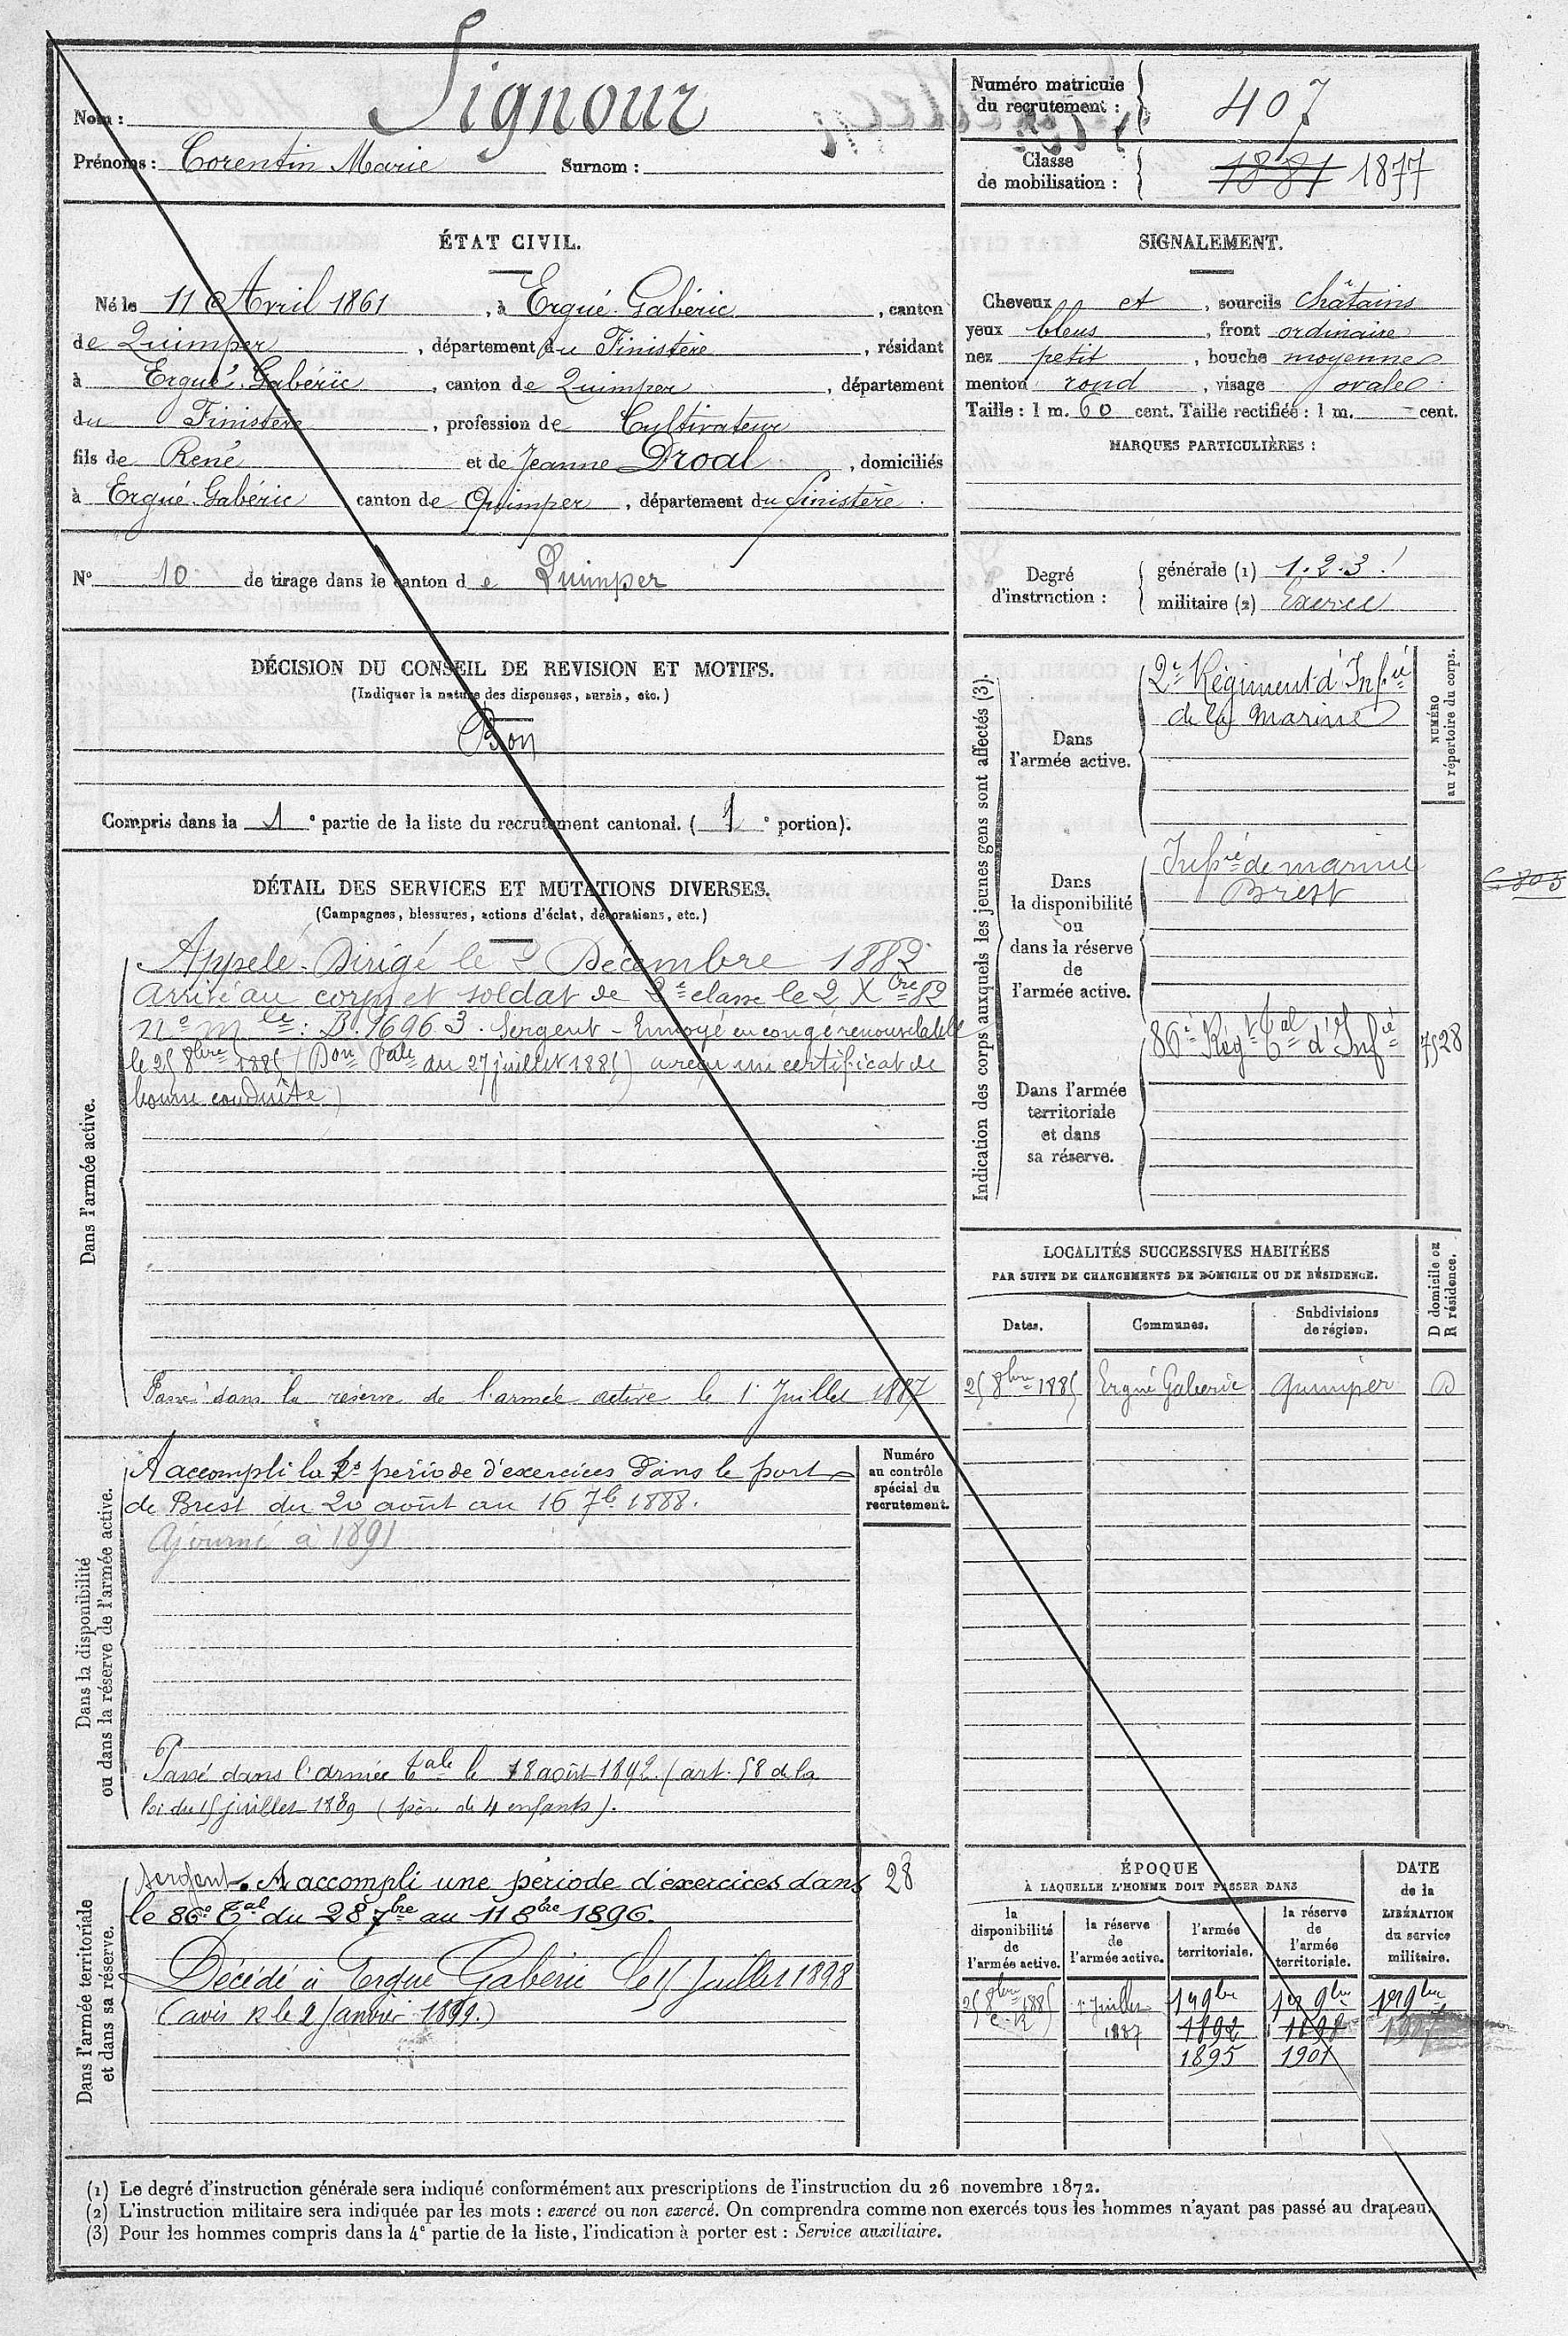 Nom : Signour
Prénoms : Corentin Marie Surnom :
Numéro matricule du recrutement : 407
Classe de mobilisation : 1881 1877
ÉTAT CIVIL.
Né le 11 Avril 1861, à Ergué-Gabéric, canton
de Quimper, département du Finistère, résidant
à Ergué-Gabéric, canton de Quimper, département
du Finistère, profession de Cultivateur
fils de René et de Jeanne Droal, domiciliés
à Ergué-Gabéric canton de Quimper, département du Finistère.
N° 10 de tirage dans le canton de Quimper
SIGNALEMENT.
Cheveux et, sourcils châtains
yeux bleus, front ordinaire
nez petit, bouche moyenne
menton rond, visage ovale
Taille : 1 m. 60 cent. Taille rectifiée : 1 m. — cent.
MARQUES PARTICULIÈRES :
Degré d'instruction :
générale (1) 1.2.3.
militaire (2) Exercé
DÉCISION DU CONSEIL DE REVISION ET MOTIFS.
(Indiquer la nature des dispenses, sursis, etc.)
Bon
Compris dans la 1e partie de la liste du recrutement cantonal. (1e portion).
DÉTAIL DES SERVICES ET MUTATIONS DIVERSES.
(Campagnes, blessures, actions d'éclat, décorations, etc.)
Dans l'armée active.
Appelé. Dirigé le 2 Décembre 1882
arrivé au corps et soldat de 2e classe le 2 Xbre 82
n° mle : B. 16963. Sergent - Envoyé en congé renouvelable
le 25 8bre 1885 (Don Pale du 27 juillet 1885) a reçu un certificat de
bonne conduite)
Passé dans la réserve de l'armée active le 1er Juillet 1887
Dans la disponibilité
ou dans la réserve de l'armée active.
A accompli la 1e période d'exercices dans le port
de Brest du 20 août au 16 7b 1888.
Ajourné à 1891
Passé dans l'armée tale le 18 août 1892. (art. 58 de la
loi du 15 juillet 1889 (père de 4 enfants).
Numéro
au contrôle
spécial du
recrutement.
Dans l'armée territoriale
et dans sa réserve.
Sergent. A accompli une période d'exercices dans 28
le 86e Tal du 28 7bre au 11 8bre 1896.
Décédé à Ergué Gabéric le 15 Juillet 1898
(avis R le 2 Janvier 1899.)
Indication des corps auxquels les jeunes gens sont affectés (3).
Dans
l'armée active.
2e Régiment d'Infie
de la marine
NUMÉRO
au répertoire du corps.
Dans
la disponibilité
ou
dans la réserve
de
l'armée active.
Infie de marine
Brest
C 805
Dans l'armée
territoriale
et dans
sa réserve.
86e Régt Tal d'Infie 7528
LOCALITÉS SUCCESSIVES HABITÉES
PAR SUITE DE CHANGEMENTS DE DOMICILE OU DE RÉSIDENCE.
D domicile ou
R résidence.
Dates. Communes. Subdivisions
de région.
25 8bre 1885 Ergué Gabéric Quimper D
ÉPOQUE
À LAQUELLE L'HOMME DOIT PASSER DANS
la
disponibilité
de
l'armée active.
la réserve
de
l'armée active.
l'armée
territoriale.
la réserve
de
l'armée
territoriale.
DATE
de la
LIBÉRATION
du service
militaire.
25 8bre 1885 1er Juillet 1er 9bre 1er 9bre 1er 9bre
C.R 1887 1892 1898
1895 1901
(1) Le degré d'instruction générale sera indiqué conformément aux prescriptions de l'instruction du 26 novembre 1872.
(2) L'instruction militaire sera indiquée par les mots : exercé ou non exercé. On comprendra comme non exercés tous les hommes n'ayant pas passé au drapeau.
(3) Pour les hommes compris dans la 4e partie de la liste, l'indication à porter est : Service auxiliaire.